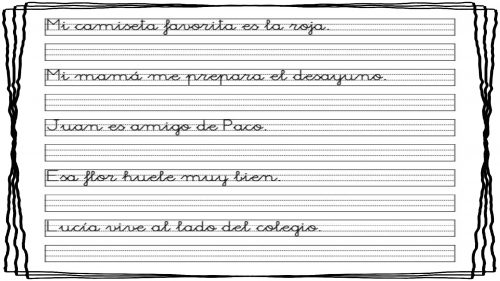 Mi camiseta favorita es la roja.
Mi mamá me prepara el desayuno.
Juan es amigo de Paco.
Esa flor huele muy bien.
Lucía vive al lado del colegio.